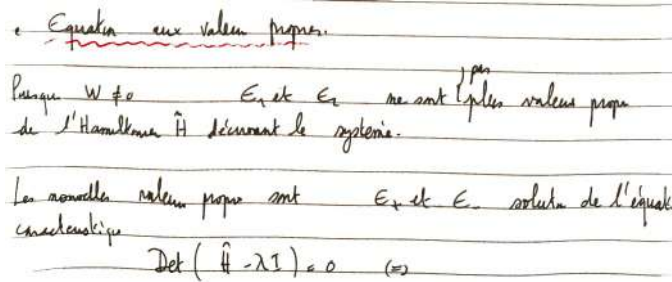 • Equation aux valeurs propres.
pas
Puisque W ≠ 0 E₁ et E₂ ne sont plus valeurs propres
de l'Hamiltonien Ĥ décrivant le système.
Les nouvelles valeurs propres sont E₊ et E₋ solution de l'équat
caractéristique
Det ( Ĥ - λI ) = 0 (=)